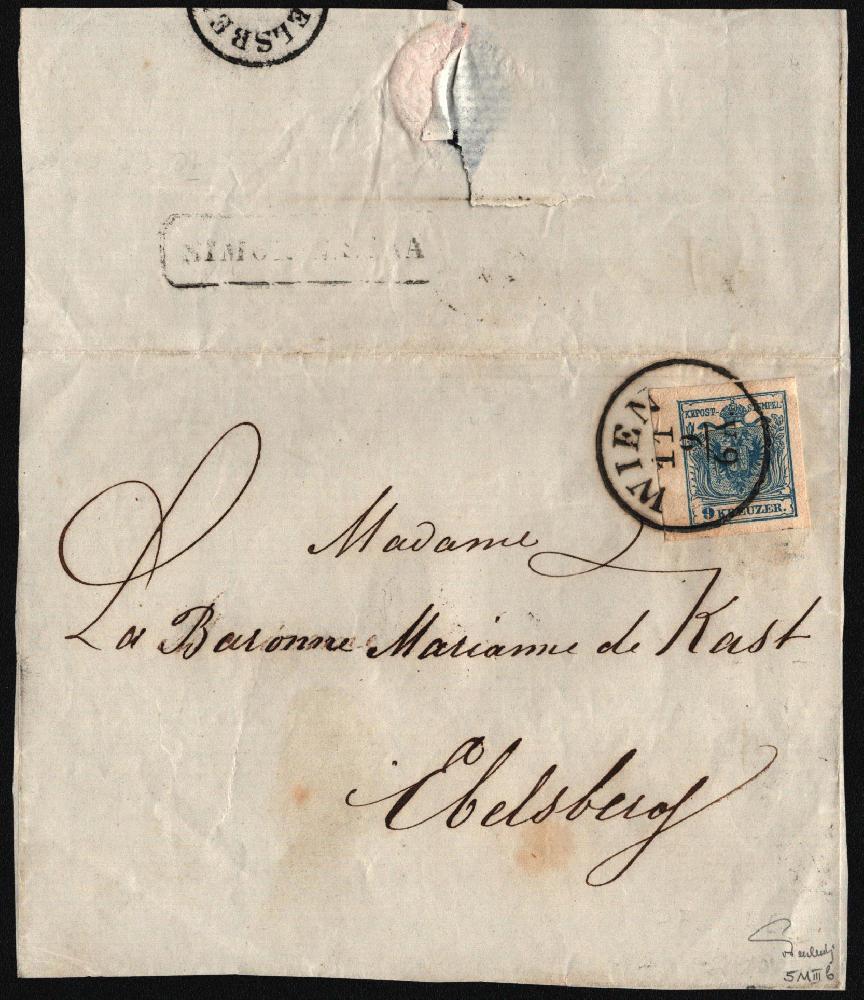 ELSBE
SIMON SINA
WIEN
11
9
6A.
KKPOST-STEMPEL
9 KREUZER.
Madame
La Baronne Marianne de Kast
Ebelsberg
5 M III b